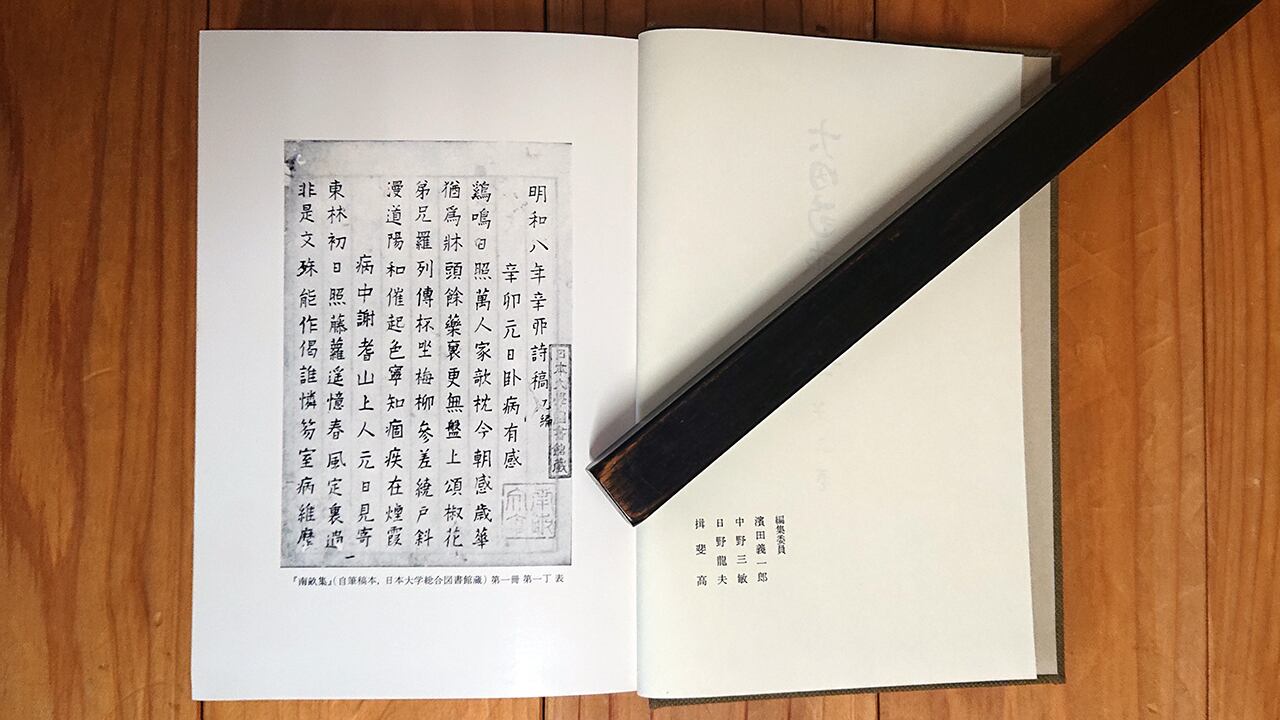 編集委員
濱田義一郎
中野三敏
日野龍夫
揖斐高
日本大學圖書館蔵
明和八年辛丣詩稿 初編
辛卯元日卧病有感
鷄鳴日照萬人家欹枕今朝感歳華
猶爲牀頭餘藥裹更無盤上頌椒花
弟兄羅列傳杯坐梅柳參差繞戸斜
漫道陽和催起色寧知痼疾在煙霞
病中謝耆山上人元日見寄
東林初日照藤蘿遥憶春風定裏過
非是文殊能作偈誰憐芴室病維摩
『南畝集』(自筆稿本, 日本大学総合図書館蔵) 第一冊 第一丁 表